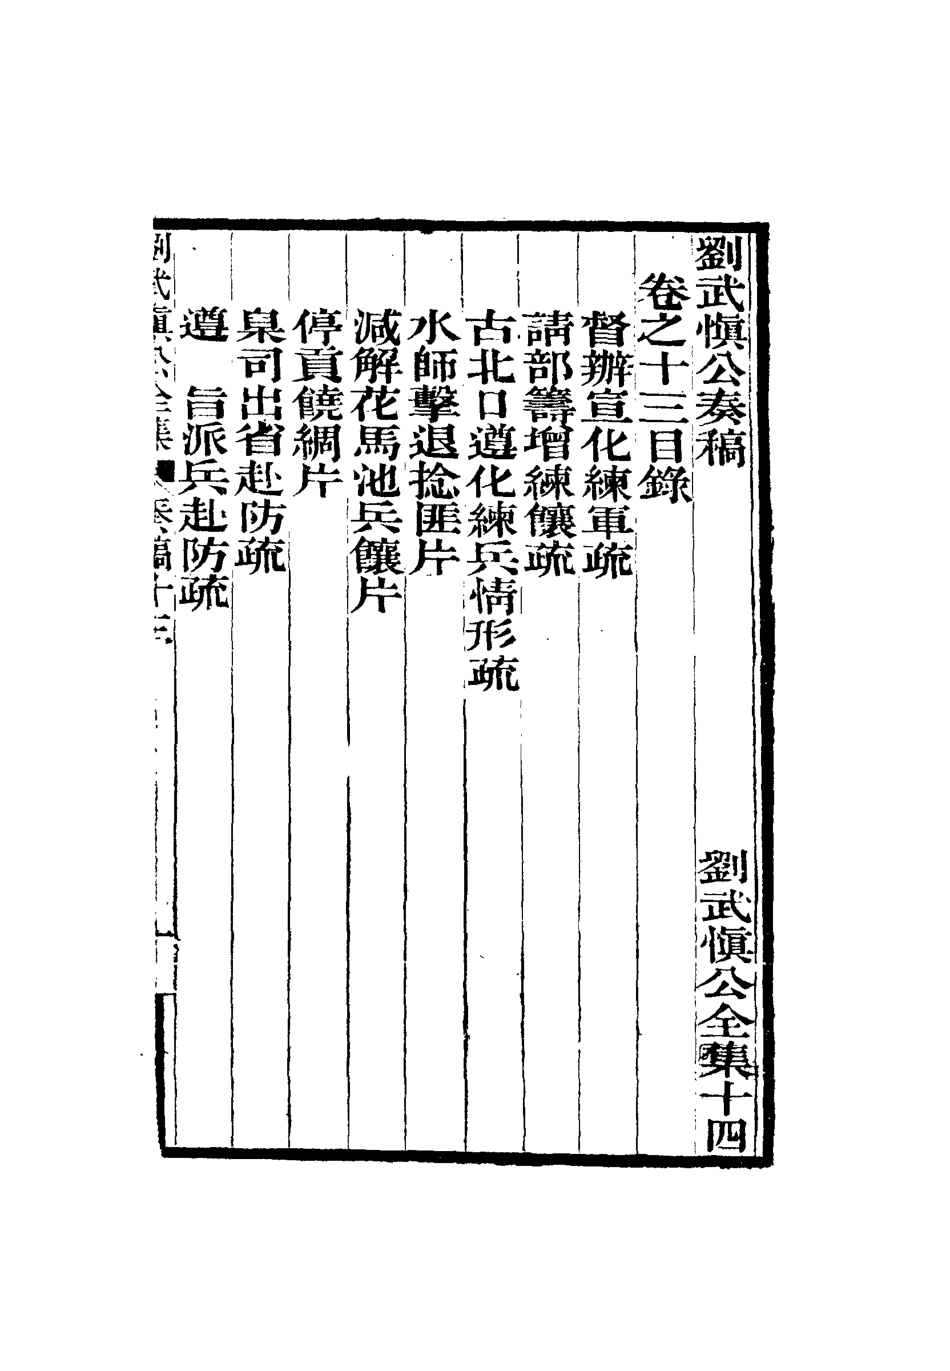 劉武愼公奏稿　劉武愼公全集十四
卷之十三目錄
督辦宣化練軍疏
請部籌增練饟疏
古北口遵化練兵情形疏
水師擊退捻匪片
減解花馬池兵饟片
停貢饒綢片
臬司出省赴防疏
遵　旨派兵赴防疏
劉武愼公全集　奏稿十三